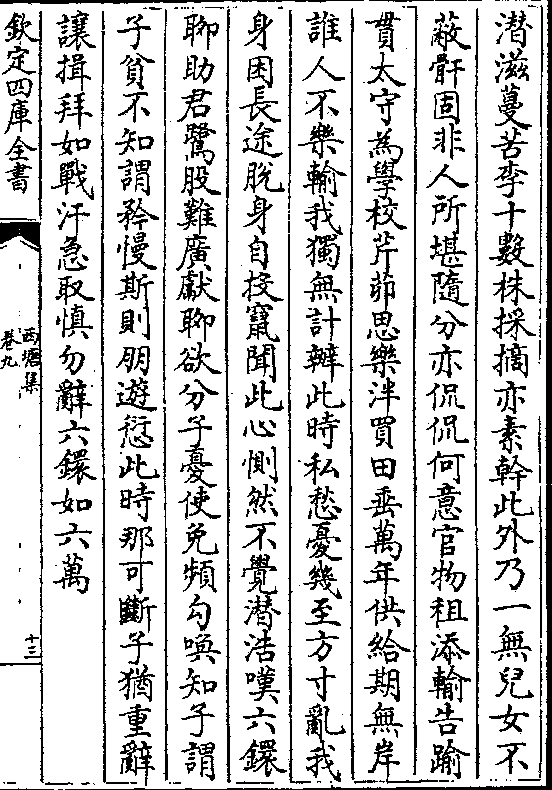 潜滋蔓苦李十數株採摘亦素幹此外乃一無兒女不
蔽骭固非人所堪隨分亦侃侃何意官物租添輸告踰
貫太守為學校芹茆思樂泮買田垂萬年供給期無岸
誰人不樂輸我獨無計辦此時私愁憂幾至方寸亂我
身困長途脫身自投竄聞此心惻然不覺潜浩嘆六鐶
聊助君鷺股難廣獻聊欲分子憂使免頻勾喚知子謂
子貧不知謂矜慢斯則朋遊愆此時那可斷子猶重辭
讓揖拜如戰汗急取慎勿辭六鐶如六萬
欽定四庫全書
西塘集
卷九
十三